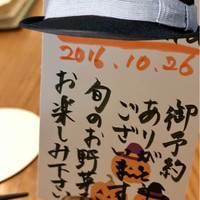 2016.10.26
御予約
ありがとう
ございます
旬のお野菜
お楽しみ下さい